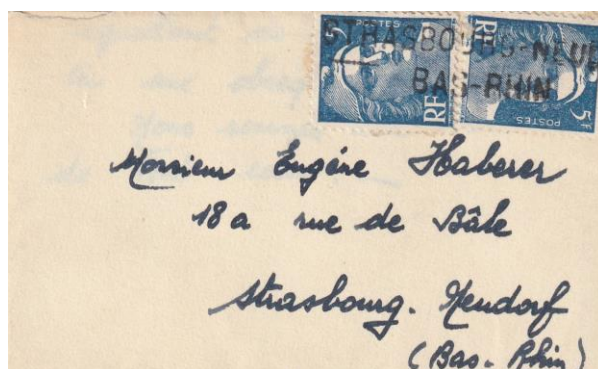 5F POSTES RF
RF POSTES 5F
STRASBOURG-NEUD
BAS-RHIN
Monsieur Eugéne Haberer
18a rue de Bâle
Strasbourg. Neudorf
(Bas-Rhin)